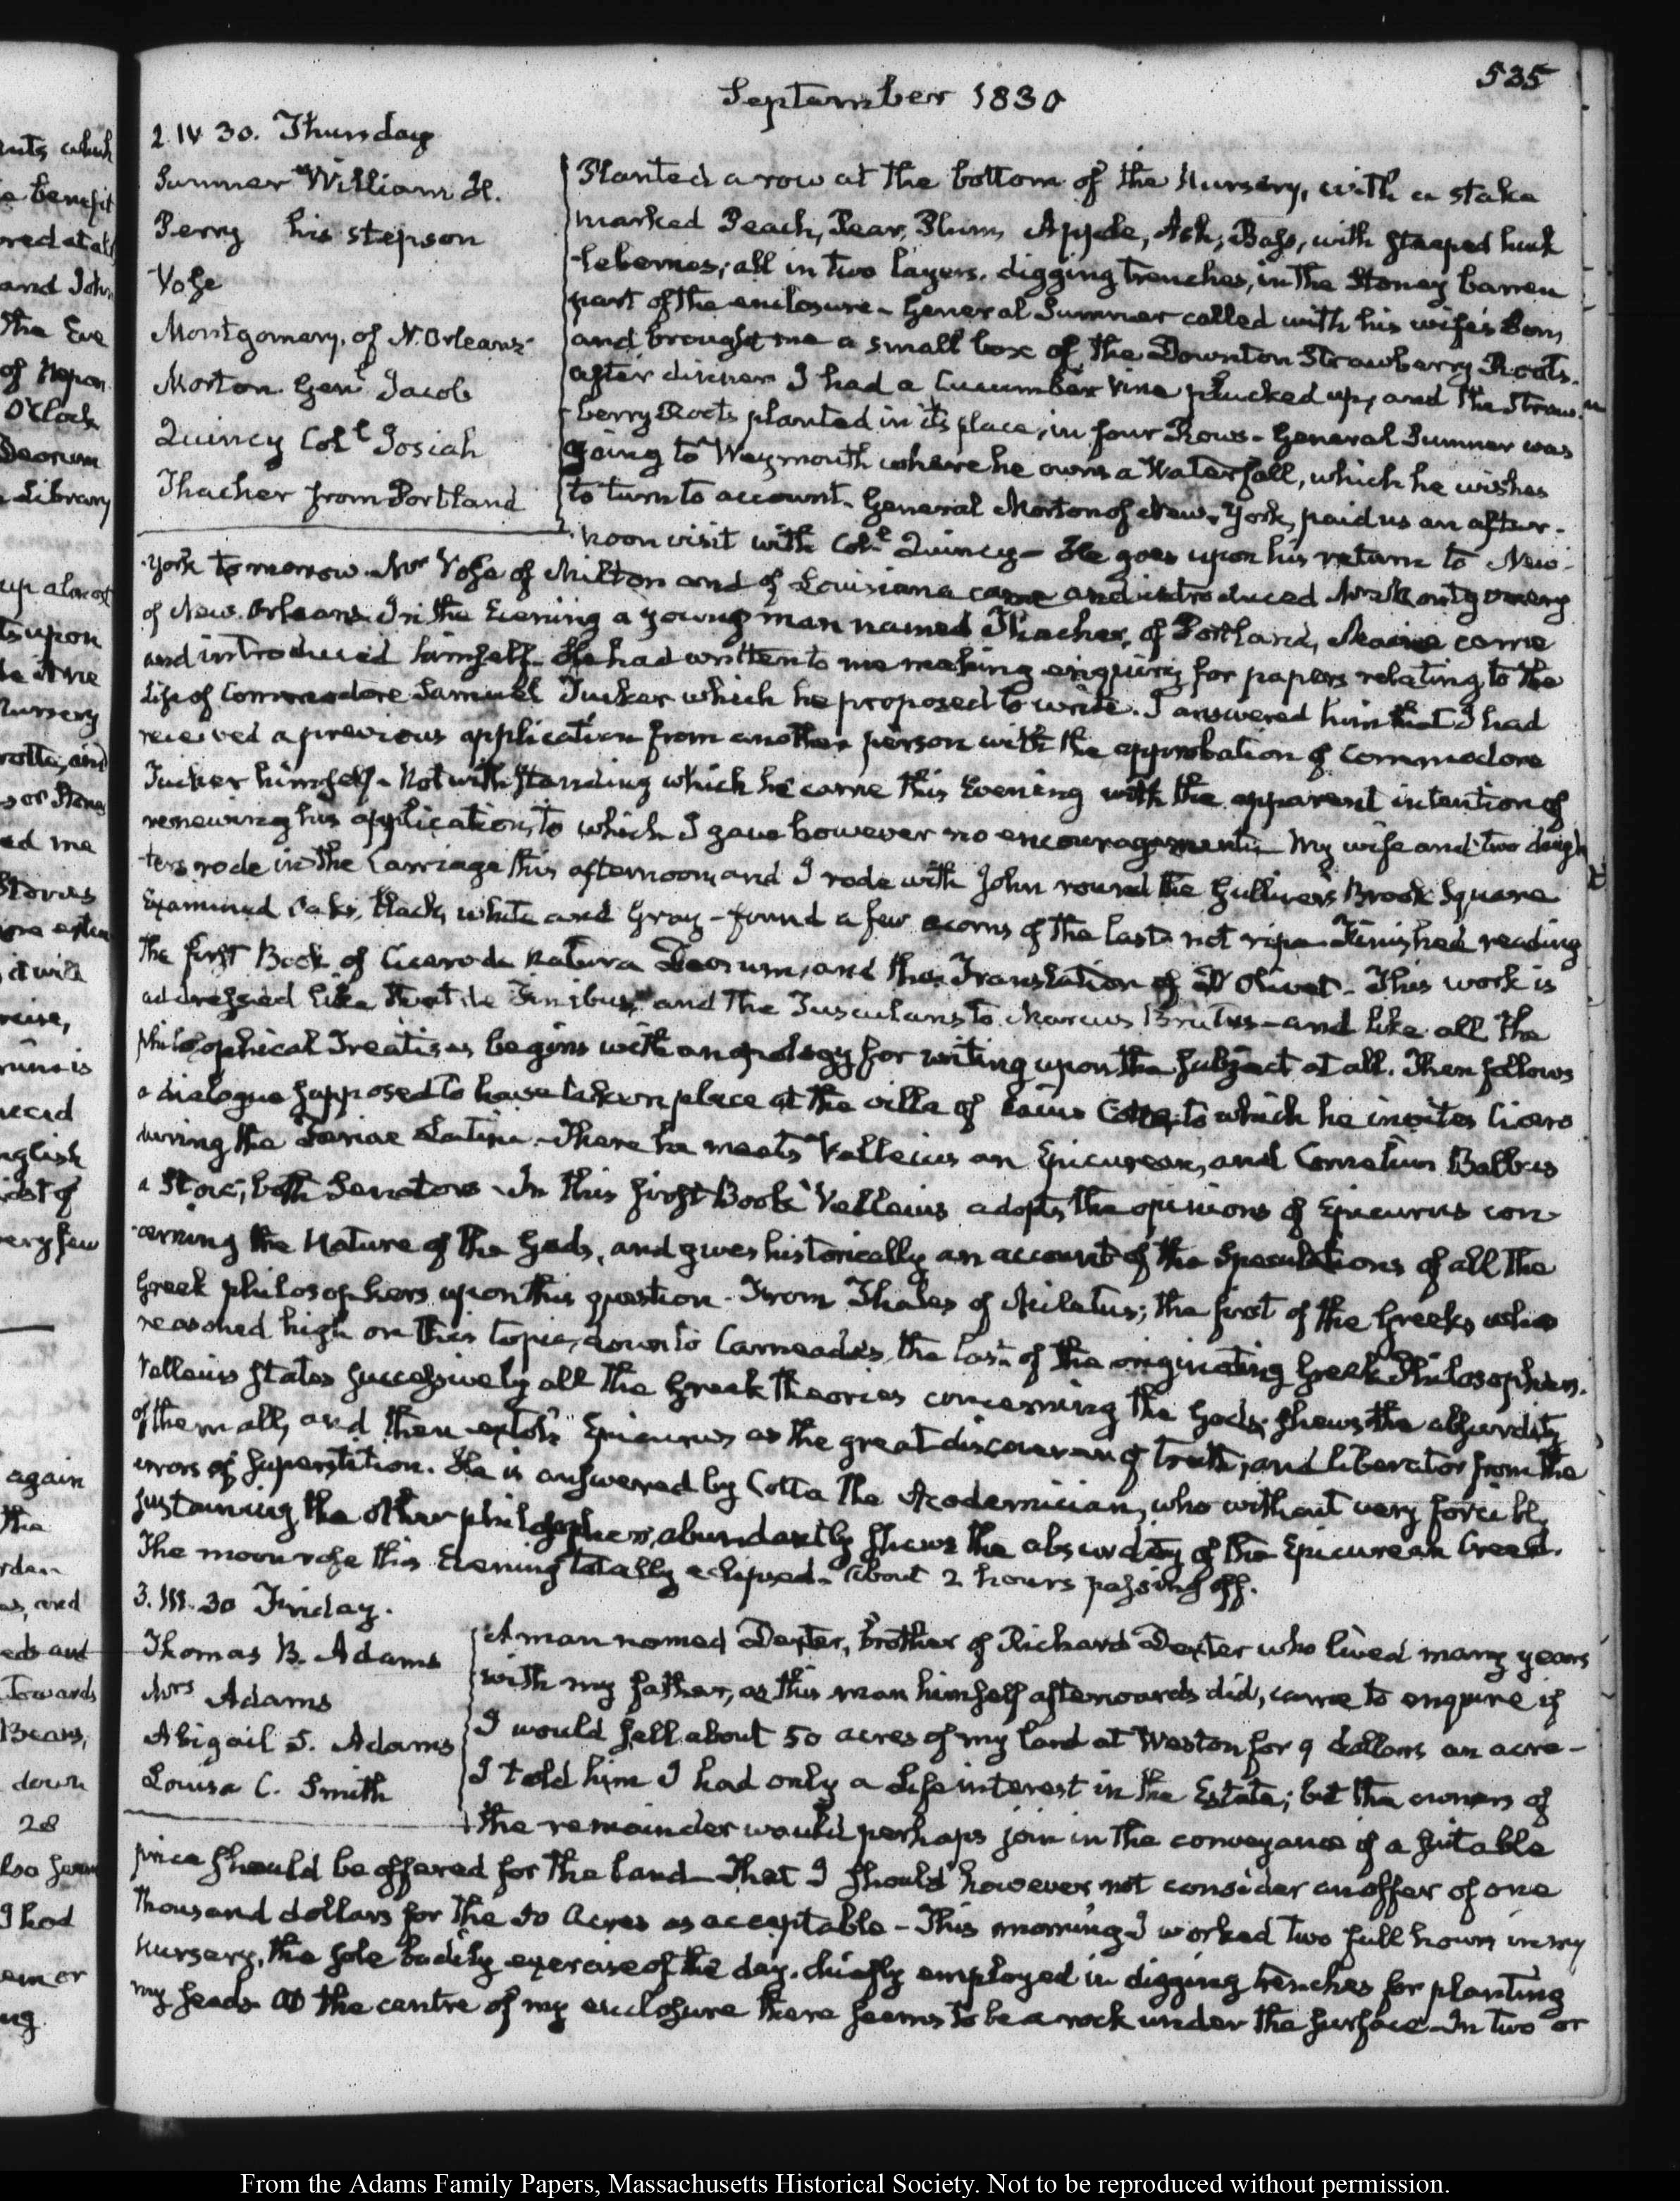 535
September 1830
2. IV 30. Thursday
Sumner William H.
Perry his stepson
Vose
Montgomery. of N. Orleans
Morton Genl. Jacob
Quincy Colt. Josiah
Thacher from Portland
Planted a row at the bottom of the Nursery, with a stake
marked Peach, Pear, Plum, Apple, Ash, Bass, with steeped huck
-leberries; all in two layers. digging trenches, in the Stoney barren
part of the enclosure. General Sumner called with his wife's Son,
and brought me a small box of the Downton Strawberry Roots.
after dinner I had a Cucumber vine plucked up, and the Straw-
berry Roots planted in its place, in four Rows. General Sumner was
going to Weymouth where he owns a Waterfall, which he wishes
to turn to account. General Morton of New-York, paid us an after-
noon visit with Colt. Quincy— He goes upon his return to New-
York to morrow. Mr Vose of Milton and of Louisiana came and introduced Mr Montgomery
of New. Orleans. In the Evening a young man named Thacher, of Portland, Maine came
and introduced himself. He had written to me making enquiry for papers relating to the
Life of Commodore Samuel Tucker which he proposed to write. I answered him that I had
received a previous application from another person with the approbation of Commodore
Tucker himself. Notwithstanding which he came this Evening with the apparent intention of
renewing his application, to which I gave however no encouragement. My wife and two daugh
-ters rode in the Carriage this afternoon, and I rode with John round the Gulliver's Brook Square
Examined Oaks, black, white and Gray – found a few acorns of the last not ripe. Finished reading
the first Book of Cicero de Natura Deorum, and the Translation of D'Olivet. This work is
addressed like that de Finibus, and the Tusculans to Marcus Brutus – and like all the
philosophical Treatises begins with an apology for writing upon the subject at all. Then follows
a dialogue supposed to have taken place at the villa of Caius Cotta, to which he invites Cicero
during the Feriae Latinae. There he meets Velleius an Epicurean, and Cornelius Balbus
a Stoic, both Senators. In this first Book Velleius adopts the opinions of Epicurus con-
-cerning the Nature of the Gods, and gives historically an account of the Speculations of all the
Greek philosophers upon this question. From Thales of Miletus; the first of the Greeks who
reasoned high on this topic, down to Carneades, the last of the originating Greek Philosophers.
Velleius states successively all the Greek theories concerning the Gods; shews the absurdity
of them all, and then extols Epicurus as the great discoverer of truth, and liberator from the
errors of Superstition. He is answered by Cotta the Academician, who without very forcibly
sustaining the other philosophers, abundantly shews the absurdity of the Epicurean Creed.
The moon rose this Evening totally eclipsed. about 2 hours passing off.
3. III. 30 Friday.
Thomas B. Adams
Mrs Adams
Abigail S. Adams
Louisa C. Smith
A man named Dexter, brother of Richard Dexter who lived many years
with my father, as this man himself afterwards did, came to enquire if
I would sell about 50 acres of my land at Weston for 9 dollars an acre—
I told him I had only a Life interest in the Estate; but the owners of
the remainder would perhaps join in the conveyance if a suitable
price should be offered for the land. That I should however not consider an offer of one
thousand dollars for the 50 Acres as acceptable – This morning I worked two full hours in my
Nursery, the sole bodily exercise of the day. chiefly employed in digging trenches for planting
my seeds. At the centre of my enclosure there seems to be a rock under the surface. In two or
From the Adams Family Papers, Massachusetts Historical Society. Not to be reproduced without permission.